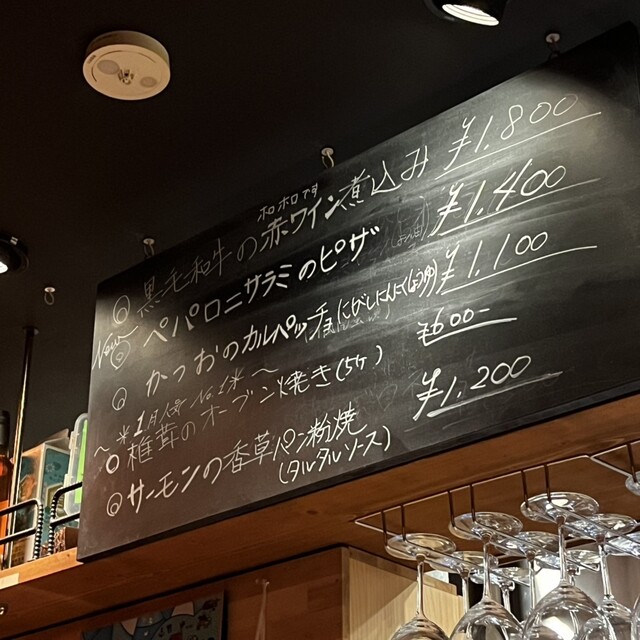 ホロホロです
◎ 黒毛和牛の赤ワイン煮込み ¥1.800
New~
◎ ペパロニサラミのピザ ¥1.400
◎ かつおのカルパッチョ (にんにくしょうゆ) ¥1.100
~ ※1月人気 No.1※ ~
○ 椎茸のオーブン焼き(5ケ) ¥600-
◎ サーモンの香草パン粉焼 ¥1.200
(タルタルソース)